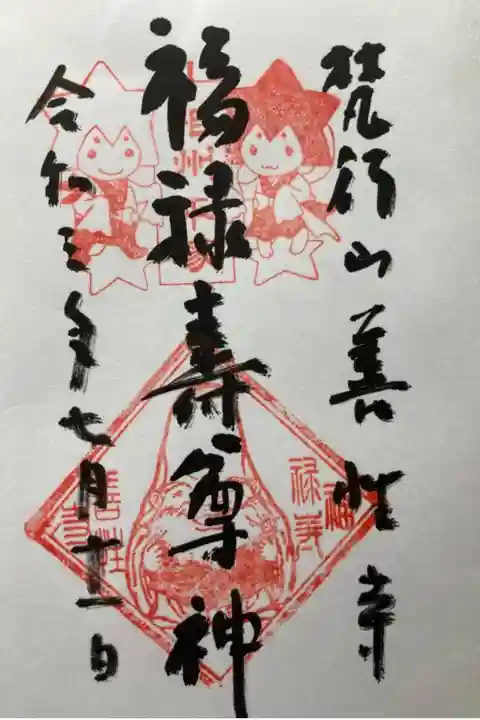 梵行山善性寺
福禄寿尊神
令和三年七月十一日
福
禄寿
善性
寺